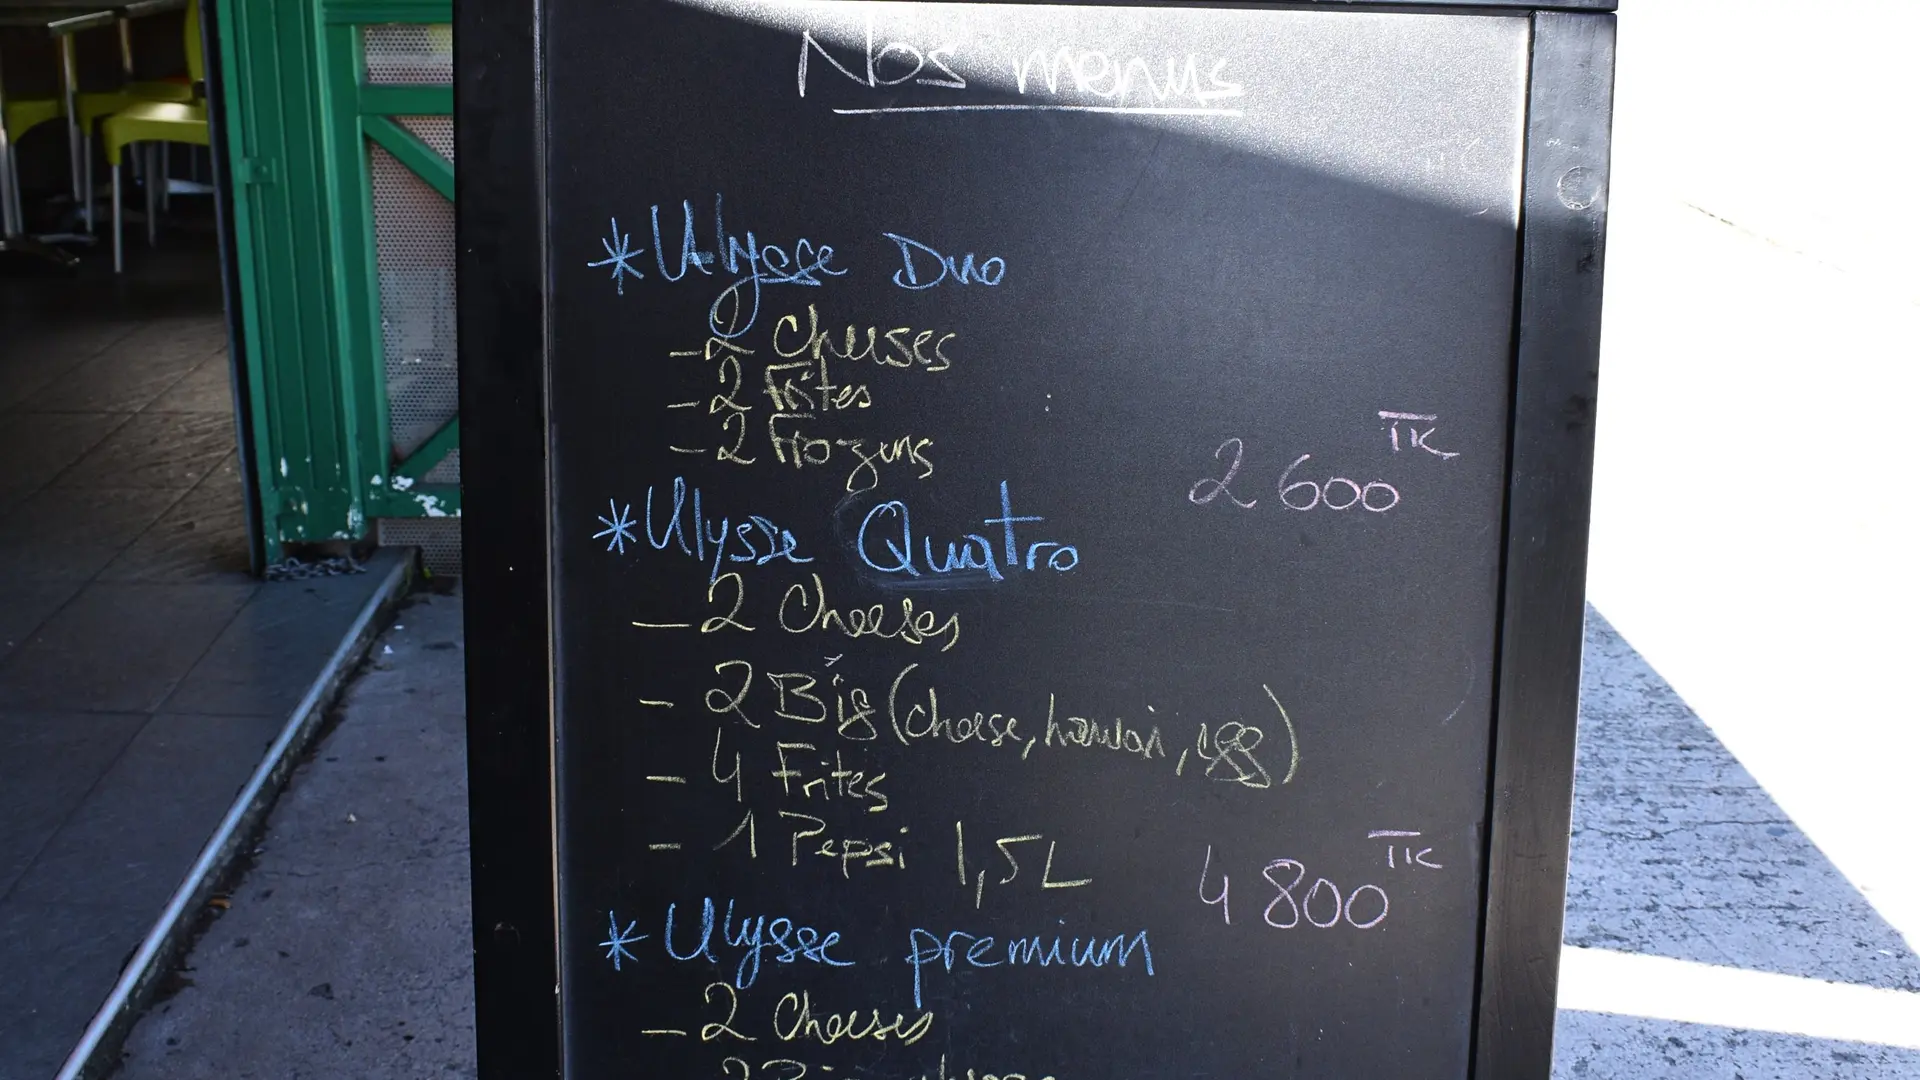 Nos menus
* Ulysse Duo
- 2 Cheeses
- 2 Frites
- 2 Frozens
2 600 TTC
* Ulysse Quatro
- 2 Cheeses
- 2 Big (cheese, hawai, egg)
- 4 Frites
- 1 Pepsi 1,5L
4 800 TTC
* Ulysse premium
- 2 Cheeses
2 Big